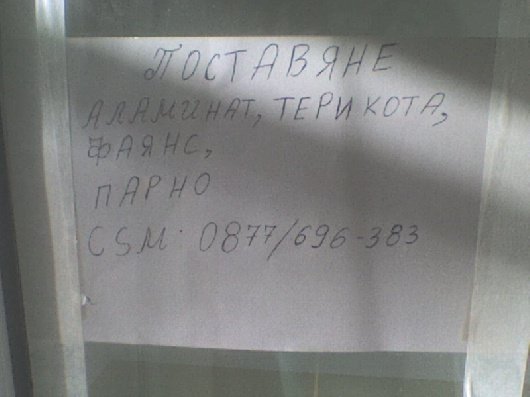 ПОСТАВЯНЕ
АЛАМИНАТ, ТЕРИКОТА,
ФАЯНС,
ПАРНО
CSM: 0877/696-383